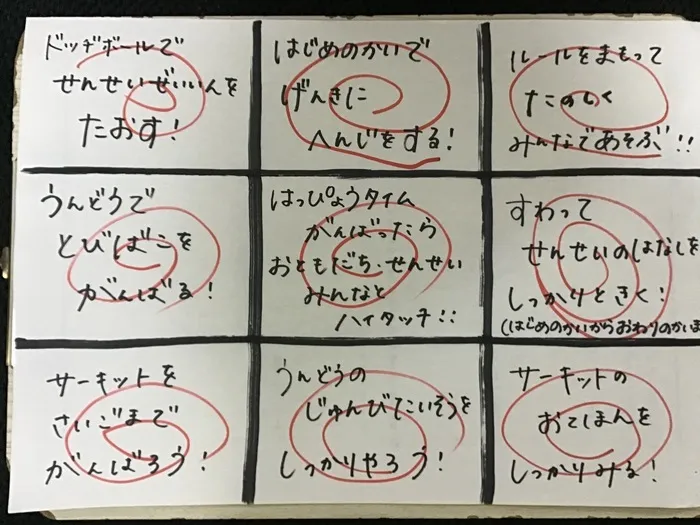 ドッヂボールで
せんせいぜいいんを
たおす!
はじめのかいで
げんきに
へんじをする!
ルールをまもって
たのしく
みんなであそぶ!!
うんどうで
とびばこを
がんばる!
はっぴょうタイム
がんばったら
おともだち、せんせい
みんなと
ハイタッチ!!
すわって
せんせいのはなしを
しっかりときく!
(はじめのかいからおわりのかいま
サーキットを
さいごまで
がんばろう!
うんどうの
じゅんびたいそうを
しっかりやろう!
サーキットの
おてほんを
しっかりみる!